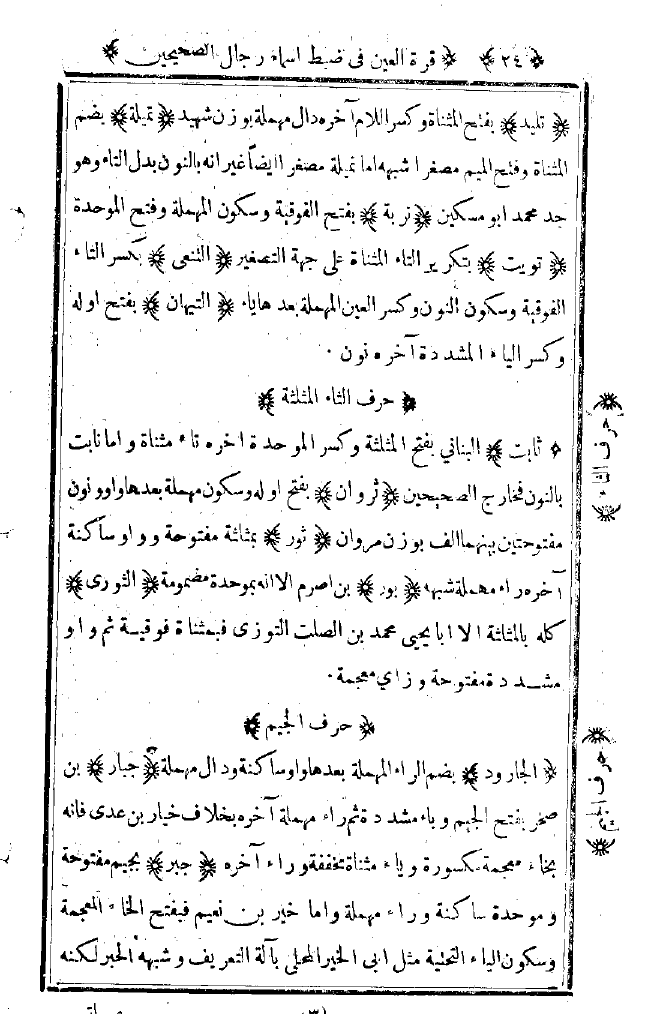 ﴿ ٢٤ ﴾ ﴿ قرة العين فى ضبط اسماء رجال الصحيحين ﴾
﴿ تليد ﴾ بفتح المثناة وكسر اللام آخره دال مهملة بوزن شهيد ﴿ تميلة ﴾ بضم
المثناة وفتح الميم مصغرا شبهه اما نميلة مصغرا ايضاً غير انه بالنون بدل التاء وهو
جد محمد ابو مسكين ﴿ تربة ﴾ بفتح الفوقية وسكون المهملة وفتح الموحدة
﴿ تويت ﴾ بتكرير التاء المثناة على جهة التصغير ﴿ التنعى ﴾ بكسر التاء
الفوقية وسكون النون وكسر العين المهملة بعدها ياء ﴿ التيهان ﴾ بفتح اوله
وكسر الياء المشددة آخره نون ٠
﴿ حرف الثاء المثلثة ﴾
﴿ ثابت ﴾ البناني بفتح المثلثة وكسر الموحدة اخره تاء مثناة واما نابت
بالنون فخارج الصحيحين ﴿ ثروان ﴾ بفتح اوله وسكون مهملة بعدها واو ونون
مفتوحتين بينهما الف بوزن مروان ﴿ ثور ﴾ بمثلثة مفتوحة وواو ساكنة
آخره راء مهملة شبهه ﴿ بور ﴾ بن اصرم الا انه بموحدة مضمومة ﴿ الثورى ﴾
كله بالمثلثة الا ابا يحيى محمد بن الصلت التوزى فبمثناة فوقية ثم واو
مشددة مفتوحة وزاي معجمة ٠
﴿ حرف الجيم ﴾
﴿ الجارود ﴾ بضم الراء المهملة بعدها واو ساكنة ودال مهملة ﴿ جبار ﴾ بن
صخر بفتح الجيم وباء مشددة ثم راء مهملة آخره بخلاف خيار بن عدى فانه
بخاء معجمة مكسورة وياء مثناة مخففة وراء آخره ﴿ جبر ﴾ بجيم مفتوحة
وموحدة ساكنة وراء مهملة واما خير بن نعيم فبفتح الخاء المعجمة
وسكون الياء التحتية مثل ابى الخير المحلى بآلة التعريف وشبهه الحبر لكنه
﴿ حرف الثاء ﴾
﴿ حرف الجيم ﴾